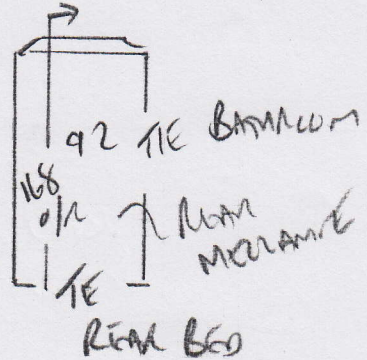 92 TIE BATHROOM
168
O/R REAR
MEZZANINE
TE
REAR BED